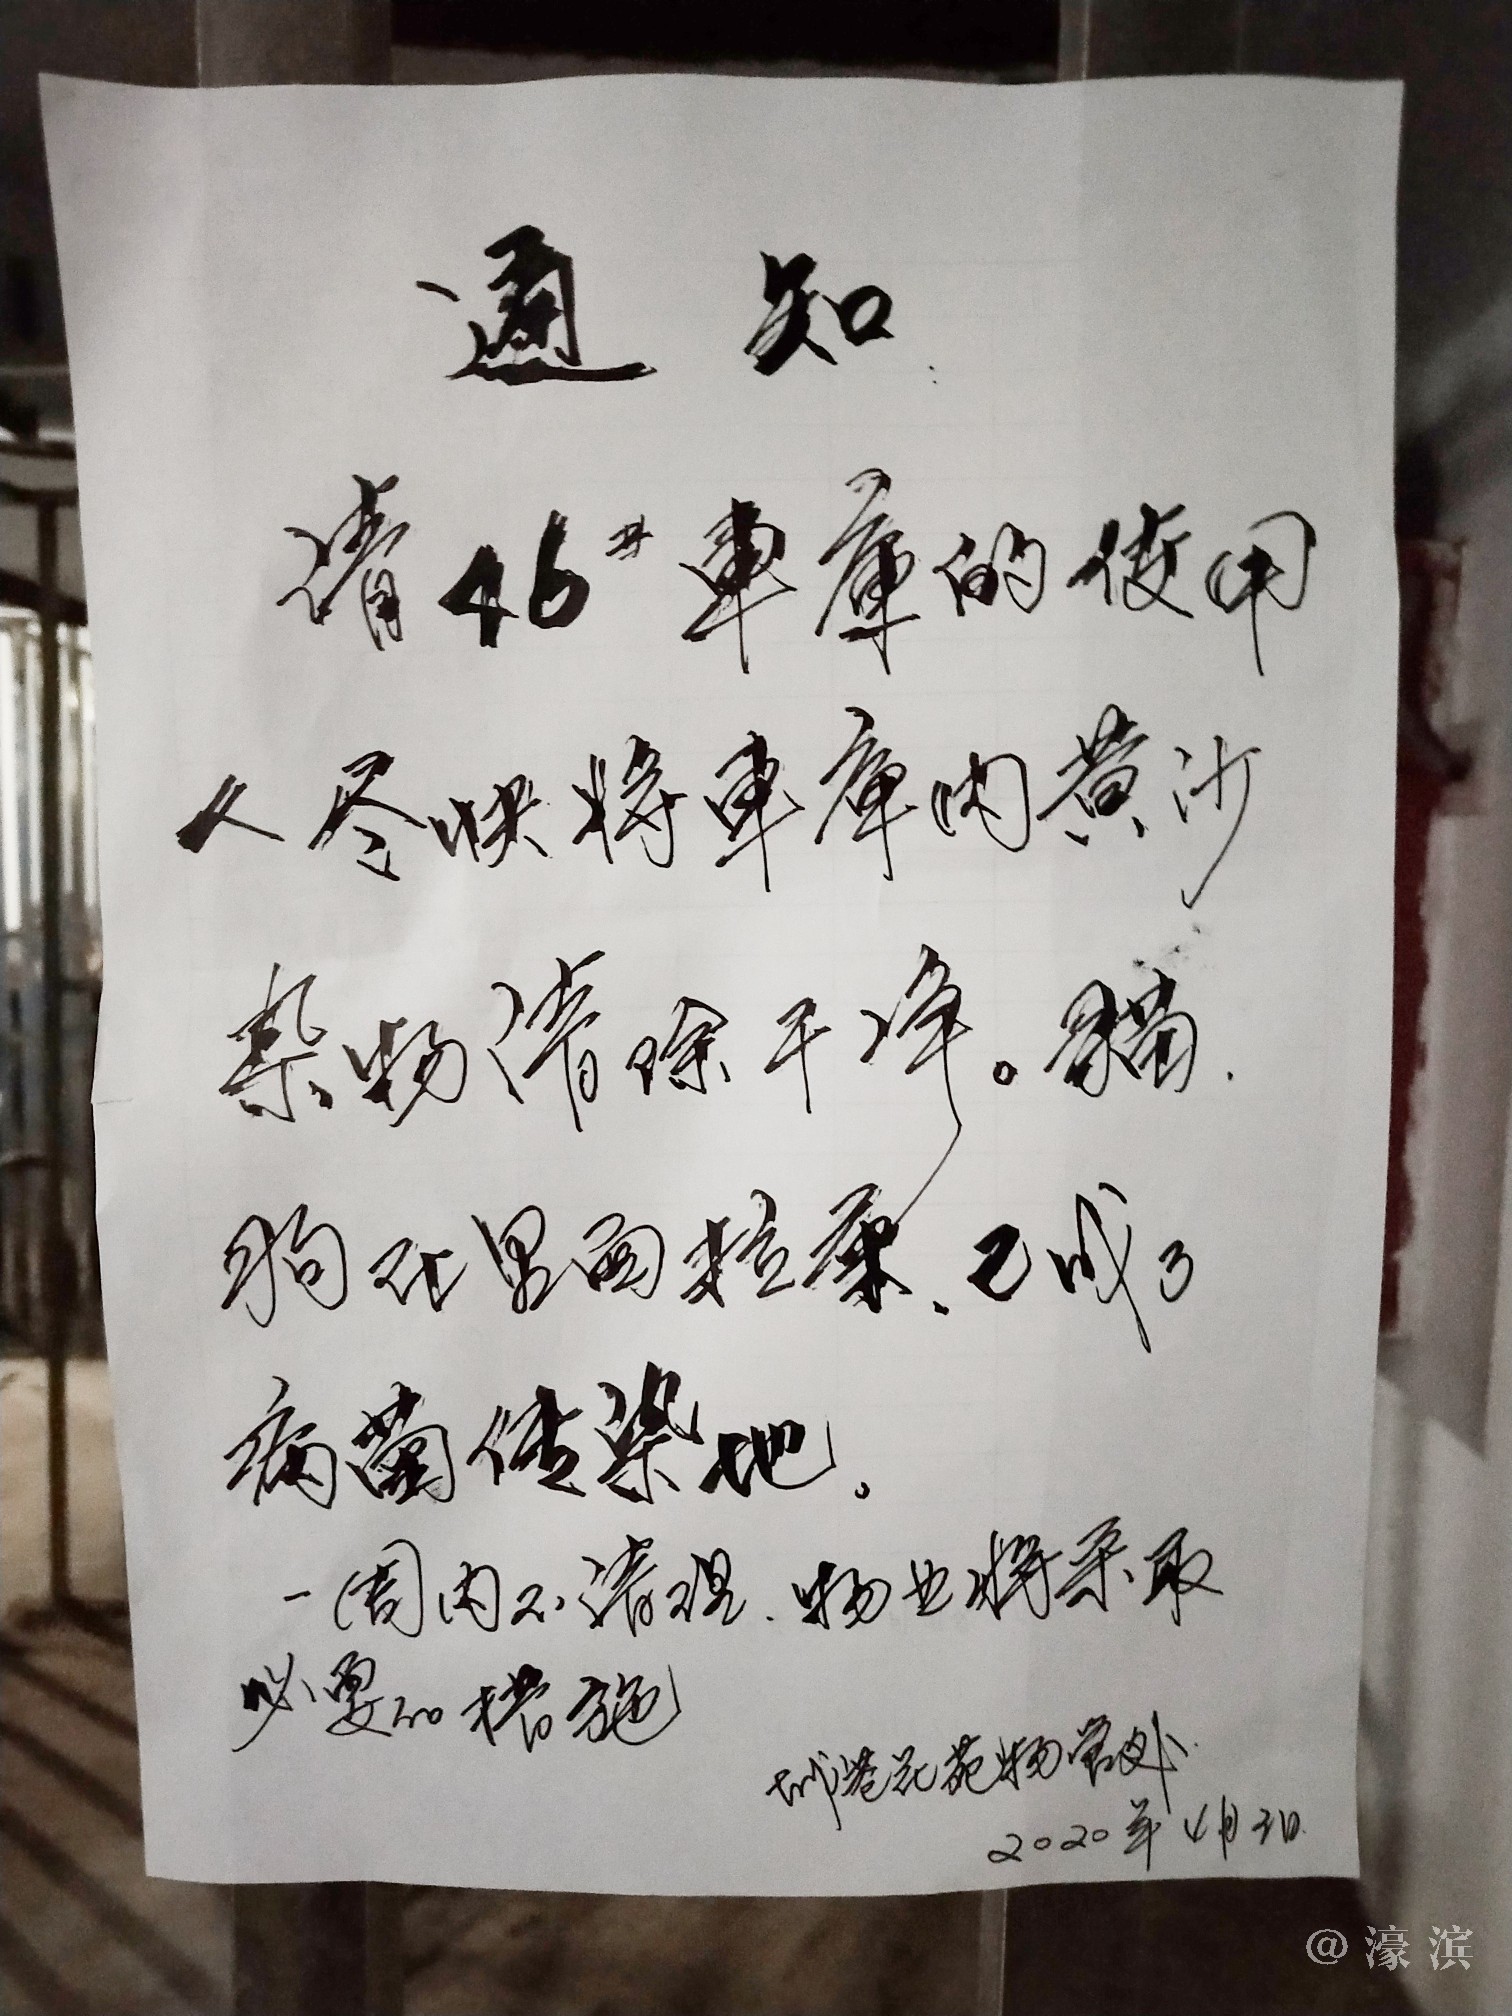 通知
请46#車库的使用
人尽快将車库内黄沙
杂物清除干净。猫.
狗在里面拉屎、已成了
病菌传染地。
一周内不清理.物业将采取
必要的措施
城港花苑物管处
2020年4月2日
@濠滨